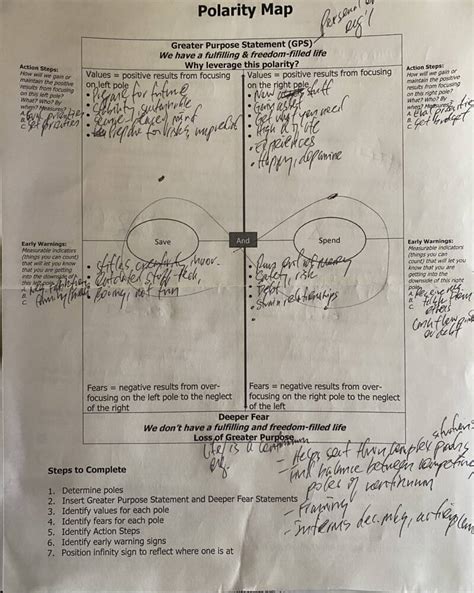 Polarity Map
Personal or
org'l
Greater Purpose Statement (GPS)
We have a fulfilling & freedom-filled life
Why leverage this polarity?
Action Steps:
How will we gain or
maintain the
positive results from
focusing on this left
pole?
What? Who? By
when? Measures?
A.
B.
C. Set priorities
Values = positive results from focusing
on left pole
• for future
• sustainable
• peace of mind
• for risks,
Values = positive results from focusing
on the right pole
• New stuff
• Get what you need
• High q of life
• Experiences
• Happy, dopamine
Action Steps:
How will we gain or
maintain the
positive results from
focusing on this
right pole?
What? Who? By
when? Measures?
A. priorities
B. Set budget
C.
Save
And
Spend
Early Warnings:
Measurable indicators
(things you can
count) that will let
you know that you
are getting into the
downside of this left
pole.
A.
B.
C.
• stifles
• outdated stuff - tech,
• boring, not fun
• Runs out of money
• Safety risk
• Debt
• Strain relationships
Early Warnings:
Measurable indicators
(things you can
count) that will let
you know that you
are getting into the
downside of this right
pole.
A.
B.
C. others
Cash flow
or debt
Fears = negative results from over-
focusing on the left pole to the neglect
of the right
Fears = negative results from over-
focusing on the right pole to the neglect of
the left
Deeper Fear
We don't have a fulfilling and freedom-filled life
Loss of Greater Purpose
Life is a continuum
- Helps sort thru complex
find balance between competing
poles of continuum
- Framing
- Informs
Steps to Complete
1. Determine poles
2. Insert Greater Purpose Statement and Deeper Fear Statements
3. Identify values for each pole
4. Identify fears for each pole
5. Identify Action Steps
6. Identify early warning signs
7. Position infinity sign to reflect where one is at